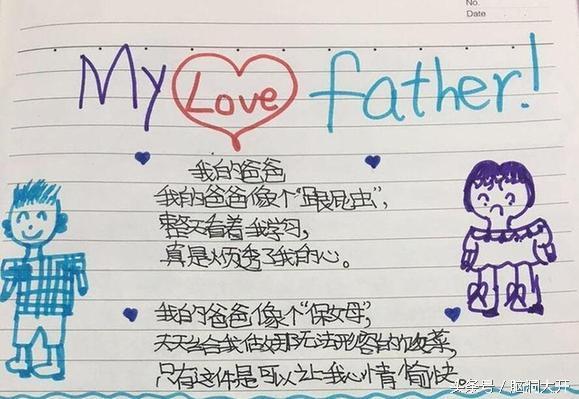 No.
Date
My Love father!
我的爸爸
我的爸爸像个“跟屁虫”,
整天看着我学习,
真是烦透了我的心。
我的爸爸像个“保姆”,
天天给我做那无法形容的饭菜,
只有这件是可以让我心情愉快
头条号／脑洞大开